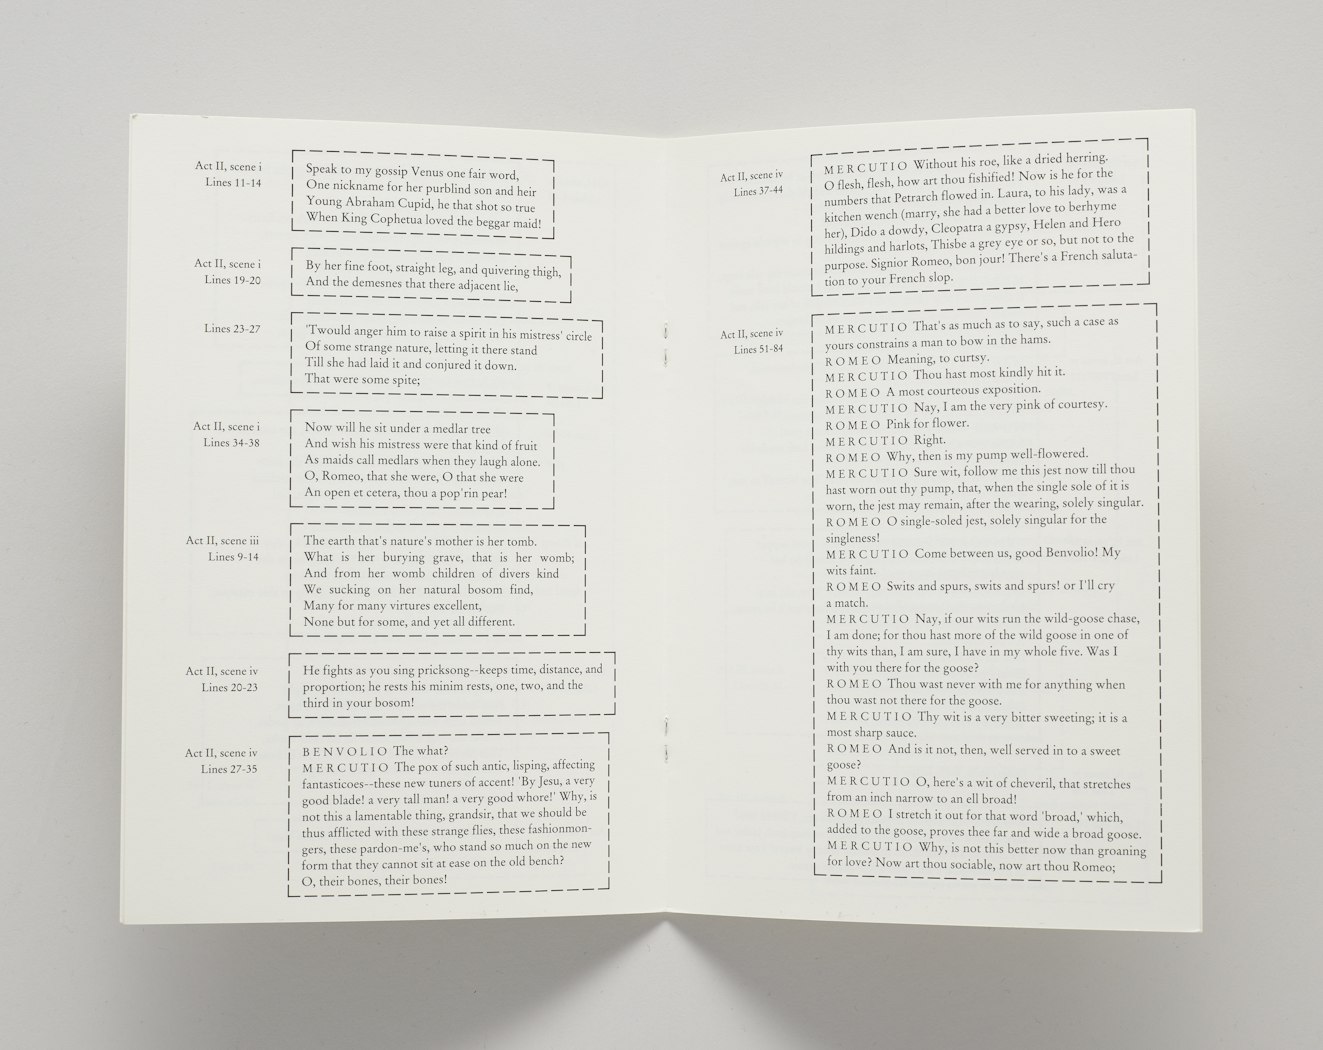 Act II, scene i
Lines 11-14
Speak to my gossip Venus one fair word,
One nickname for her purblind son and heir
Young Abraham Cupid, he that shot so true
When King Cophetua loved the beggar maid!
Act II, scene i
Lines 19-20
By her fine foot, straight leg, and quivering thigh,
And the demesnes that there adjacent lie,
Lines 23-27
'Twould anger him to raise a spirit in his mistress' circle
Of some strange nature, letting it there stand
Till she had laid it and conjured it down.
That were some spite;
Act II, scene i
Lines 34-38
Now will he sit under a medlar tree
And wish his mistress were that kind of fruit
As maids call medlars when they laugh alone.
O, Romeo, that she were, O that she were
An open et cetera, thou a pop'rin pear!
Act II, scene iii
Lines 9-14
The earth that's nature's mother is her tomb.
What is her burying grave, that is her womb;
And from her womb children of divers kind
We sucking on her natural bosom find,
Many for many virtures excellent,
None but for some, and yet all different.
Act II, scene iv
Lines 20-23
He fights as you sing pricksong--keeps time, distance, and
proportion; he rests his minim rests, one, two, and the
third in your bosom!
Act II, scene iv
Lines 27-35
BENVOLIO The what?
MERCUTIO The pox of such antic, lisping, affecting
fantasticoes--these new tuners of accent! 'By Jesu, a very
good blade! a very tall man! a very good whore!' Why, is
not this a lamentable thing, grandsir, that we should be
thus afflicted with these strange flies, these fashionmon-
gers, these pardon-me's, who stand so much on the new
form that they cannot sit at ease on the old bench?
O, their bones, their bones!
Act II, scene iv
Lines 37-44
MERCUTIO Without his roe, like a dried herring.
O flesh, flesh, how art thou fishified! Now is he for the
numbers that Petrarch flowed in. Laura, to his lady, was a
kitchen wench (marry, she had a better love to berhyme
her), Dido a dowdy, Cleopatra a gypsy, Helen and Hero
hildings and harlots, Thisbe a grey eye or so, but not to the
purpose. Signior Romeo, bon jour! There's a French saluta-
tion to your French slop.
Act II, scene iv
Lines 51-84
MERCUTIO That's as much as to say, such a case as
yours constrains a man to bow in the hams.
ROMEO Meaning, to curtsy.
MERCUTIO Thou hast most kindly hit it.
ROMEO A most courteous exposition.
MERCUTIO Nay, I am the very pink of courtesy.
ROMEO Pink for flower.
MERCUTIO Right.
ROMEO Why, then is my pump well-flowered.
MERCUTIO Sure wit, follow me this jest now till thou
hast worn out thy pump, that, when the single sole of it is
worn, the jest may remain, after the wearing, solely singular.
ROMEO O single-soled jest, solely singular for the
singleness!
MERCUTIO Come between us, good Benvolio! My
wits faint.
ROMEO Swits and spurs, swits and spurs! or I'll cry
a match.
MERCUTIO Nay, if our wits run the wild-goose chase,
I am done; for thou hast more of the wild goose in one of
thy wits than, I am sure, I have in my whole five. Was I
with you there for the goose?
ROMEO Thou wast never with me for anything when
thou wast not there for the goose.
MERCUTIO Thy wit is a very bitter sweeting; it is a
most sharp sauce.
ROMEO And is it not, then, well served in to a sweet
goose?
MERCUTIO O, here's a wit of cheveril, that stretches
from an inch narrow to an ell broad!
ROMEO I stretch it out for that word 'broad,' which,
added to the goose, proves thee far and wide a broad goose.
MERCUTIO Why, is not this better now than groaning
for love? Now art thou sociable, now art thou Romeo;